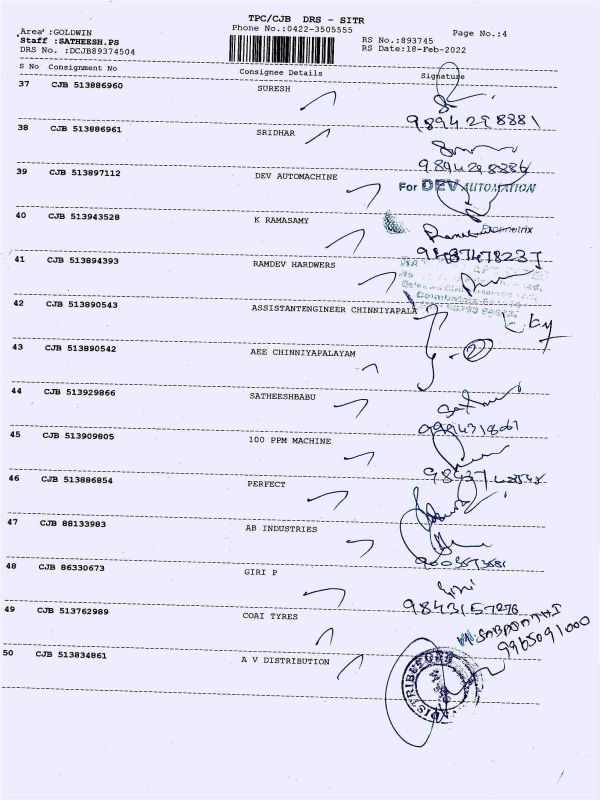 TPC/CJB DRS - SITR
Area :GOLDWIN
Phone No.:0422-3505555
Page No.:4
Staff :SATHEESH.PS
RS No.:893745
DRS No. :DCJB89374504
RS Date:18-Feb-2022
S No Consignment No Consignee Details Signature
37 CJB 513886960 SURESH
9894298881
38 CJB 513886961 SRIDHAR
9894298886
39 CJB 513897112 DEV AUTOMACHINE
For DEV AUTOMATION
40 CJB 513943528 K RAMASAMY
41 CJB 513894393 RAMDEV HARDWERS
42 CJB 513890543 ASSISTANTENGINEER CHINNIYAPALA
43 CJB 513890542 AEE CHINNIYAPALAYAM
44 CJB 513929866 SATHEESHBABU
45 CJB 513909805 100 PPM MACHINE
46 CJB 513886854 PERFECT
47 CJB 88133983 AB INDUSTRIES
48 CJB 86330673 GIRI P
9843157276
49 CJB 513762989 COAI TYRES
9965091000
50 CJB 513834861 A V DISTRIBUTION